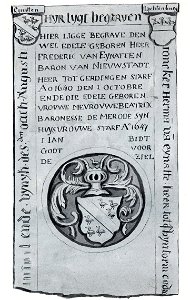 Eynatten
HYR LYGT BEGRAVEN
HIER LIGGE BEGRAVE DEN
WEL EDELE GEBOREN HEER
FREDERIC VAN EYNATTEN
BARON VAN NIEUWSTADT
HEER TOT GERDINGEN STARF
Ao 1640 DEN 1 OCTOBRE
ENDE DIE EDELE GEBOREN
VROUWE MEVROUWE BEATRIX
BARONESSE DE MERODE SYN
HUYSVROUWE STARF Ao 1647
1 IAN BIDT
GODT VOOR
DE ZIEL
joncker eynatte heer tot